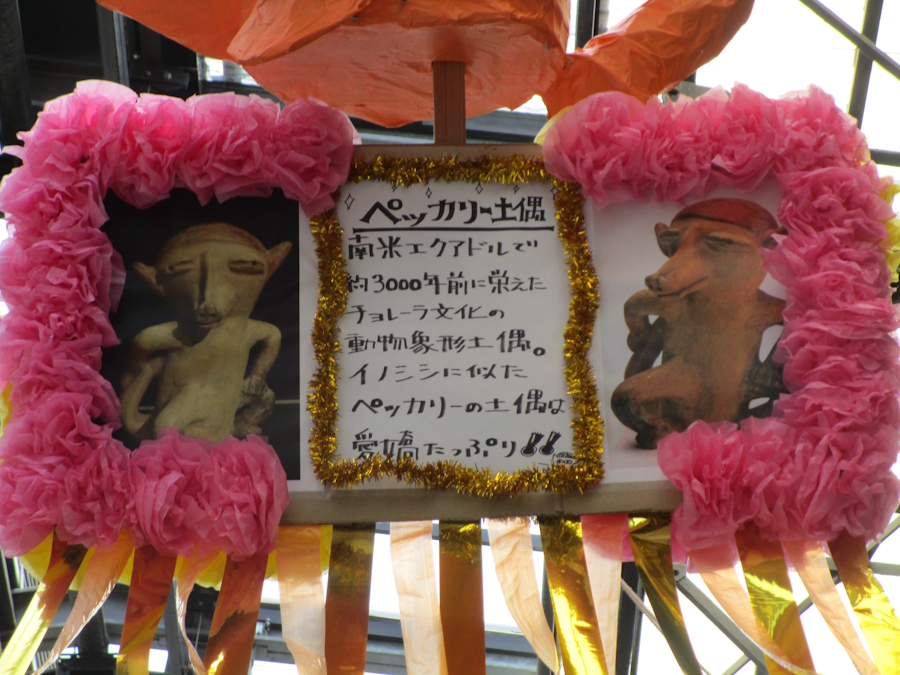 ペッカリー土偶
南米エクアドルで
約3000年前に栄えた
チョレーラ文化の
動物象形土偶。
イノシシに似た
ペッカリーの土偶は
愛嬌たっぷり!!